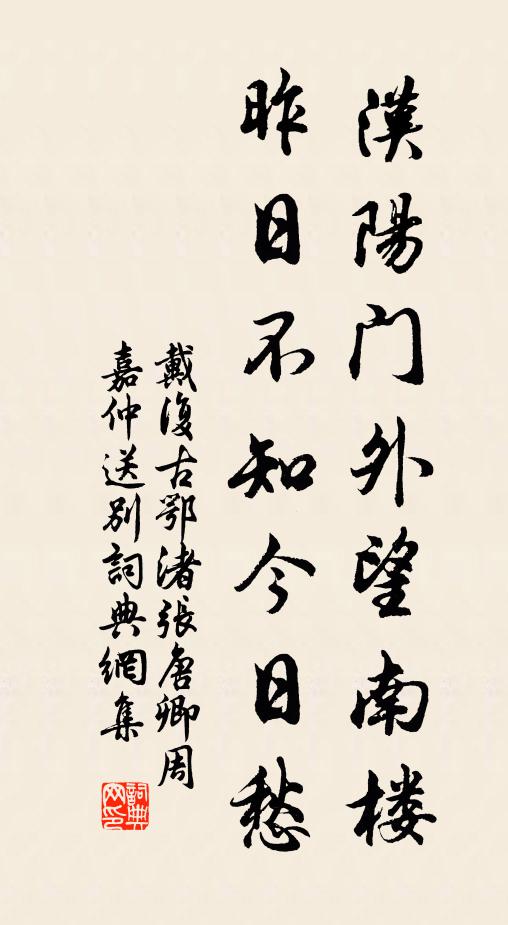 漢陽门外望南楼
昨日不知今日愁
戴復古鄂渚張唐卿周
嘉仲送别詞典網集
詞典网印